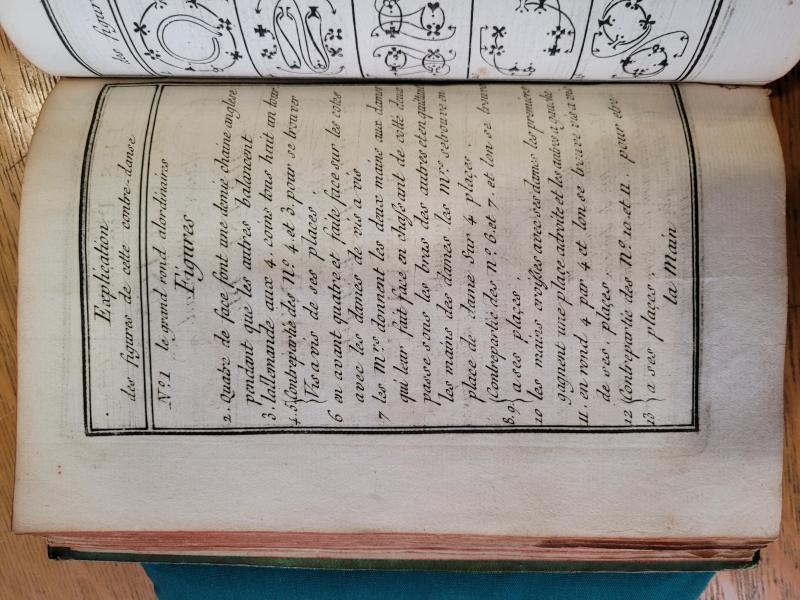 Explication
des figures de cette contre-danse
Nº. 1 le grand rond alordinaires
Figures
2. Quatre de face font une demie chaine anglese
pendant que les autres balancent
3. lallemande aux 4. come tous huit un tour
4.5 Contrepartie des Nº. 4 et 3. pour se trouver
Vis a vis de ses places
6 en avant quatre et faite face sur les cotes
avec les dames de vis a vis
7 les Mrs donnent les deux mains aux dames
qui leur fait face en chassant de cotte deux
passe sous les bras des autres et en quittant
les mains des dames les Mrs se trouve en
place de dame Sur 4 places.
8.9 Contrepartie des nº. 6. et 7. et lon se trouve
a ses places
10 les mains croisses avec ses dames les premiers
gagnent une place adroite et les autres a gauche
11. en rond 4 par 4 et lon se trouve vis a vis
de ses places.
12 Contrepartie des Nº. 10. et 11. pour etre
13 a ses places.
la Main
les figur